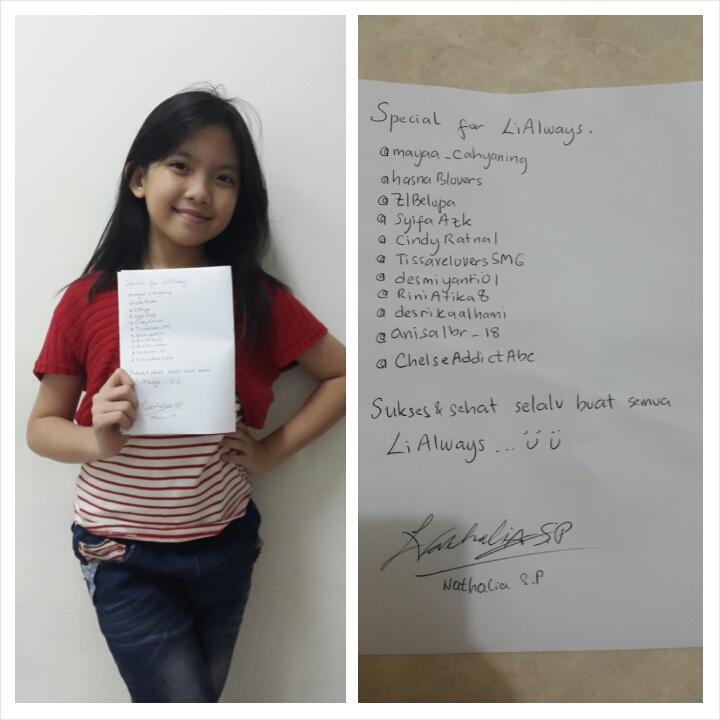 Special for LiAlways.
@mayaa_cahyaning
@hasnaBlovers
@ZIBelopa
@SyifaAzk
@CindyRatna1
@TissaveloversSMG
@desmiyanti01
@RiniAtika8
@desrikaalhami
@anisalbr_18
@ChelseAddictAbc
Sukses & sehat selalu buat semua
LiAlways ... Ü Ü
Nathalia S.P
Nathalia S.P